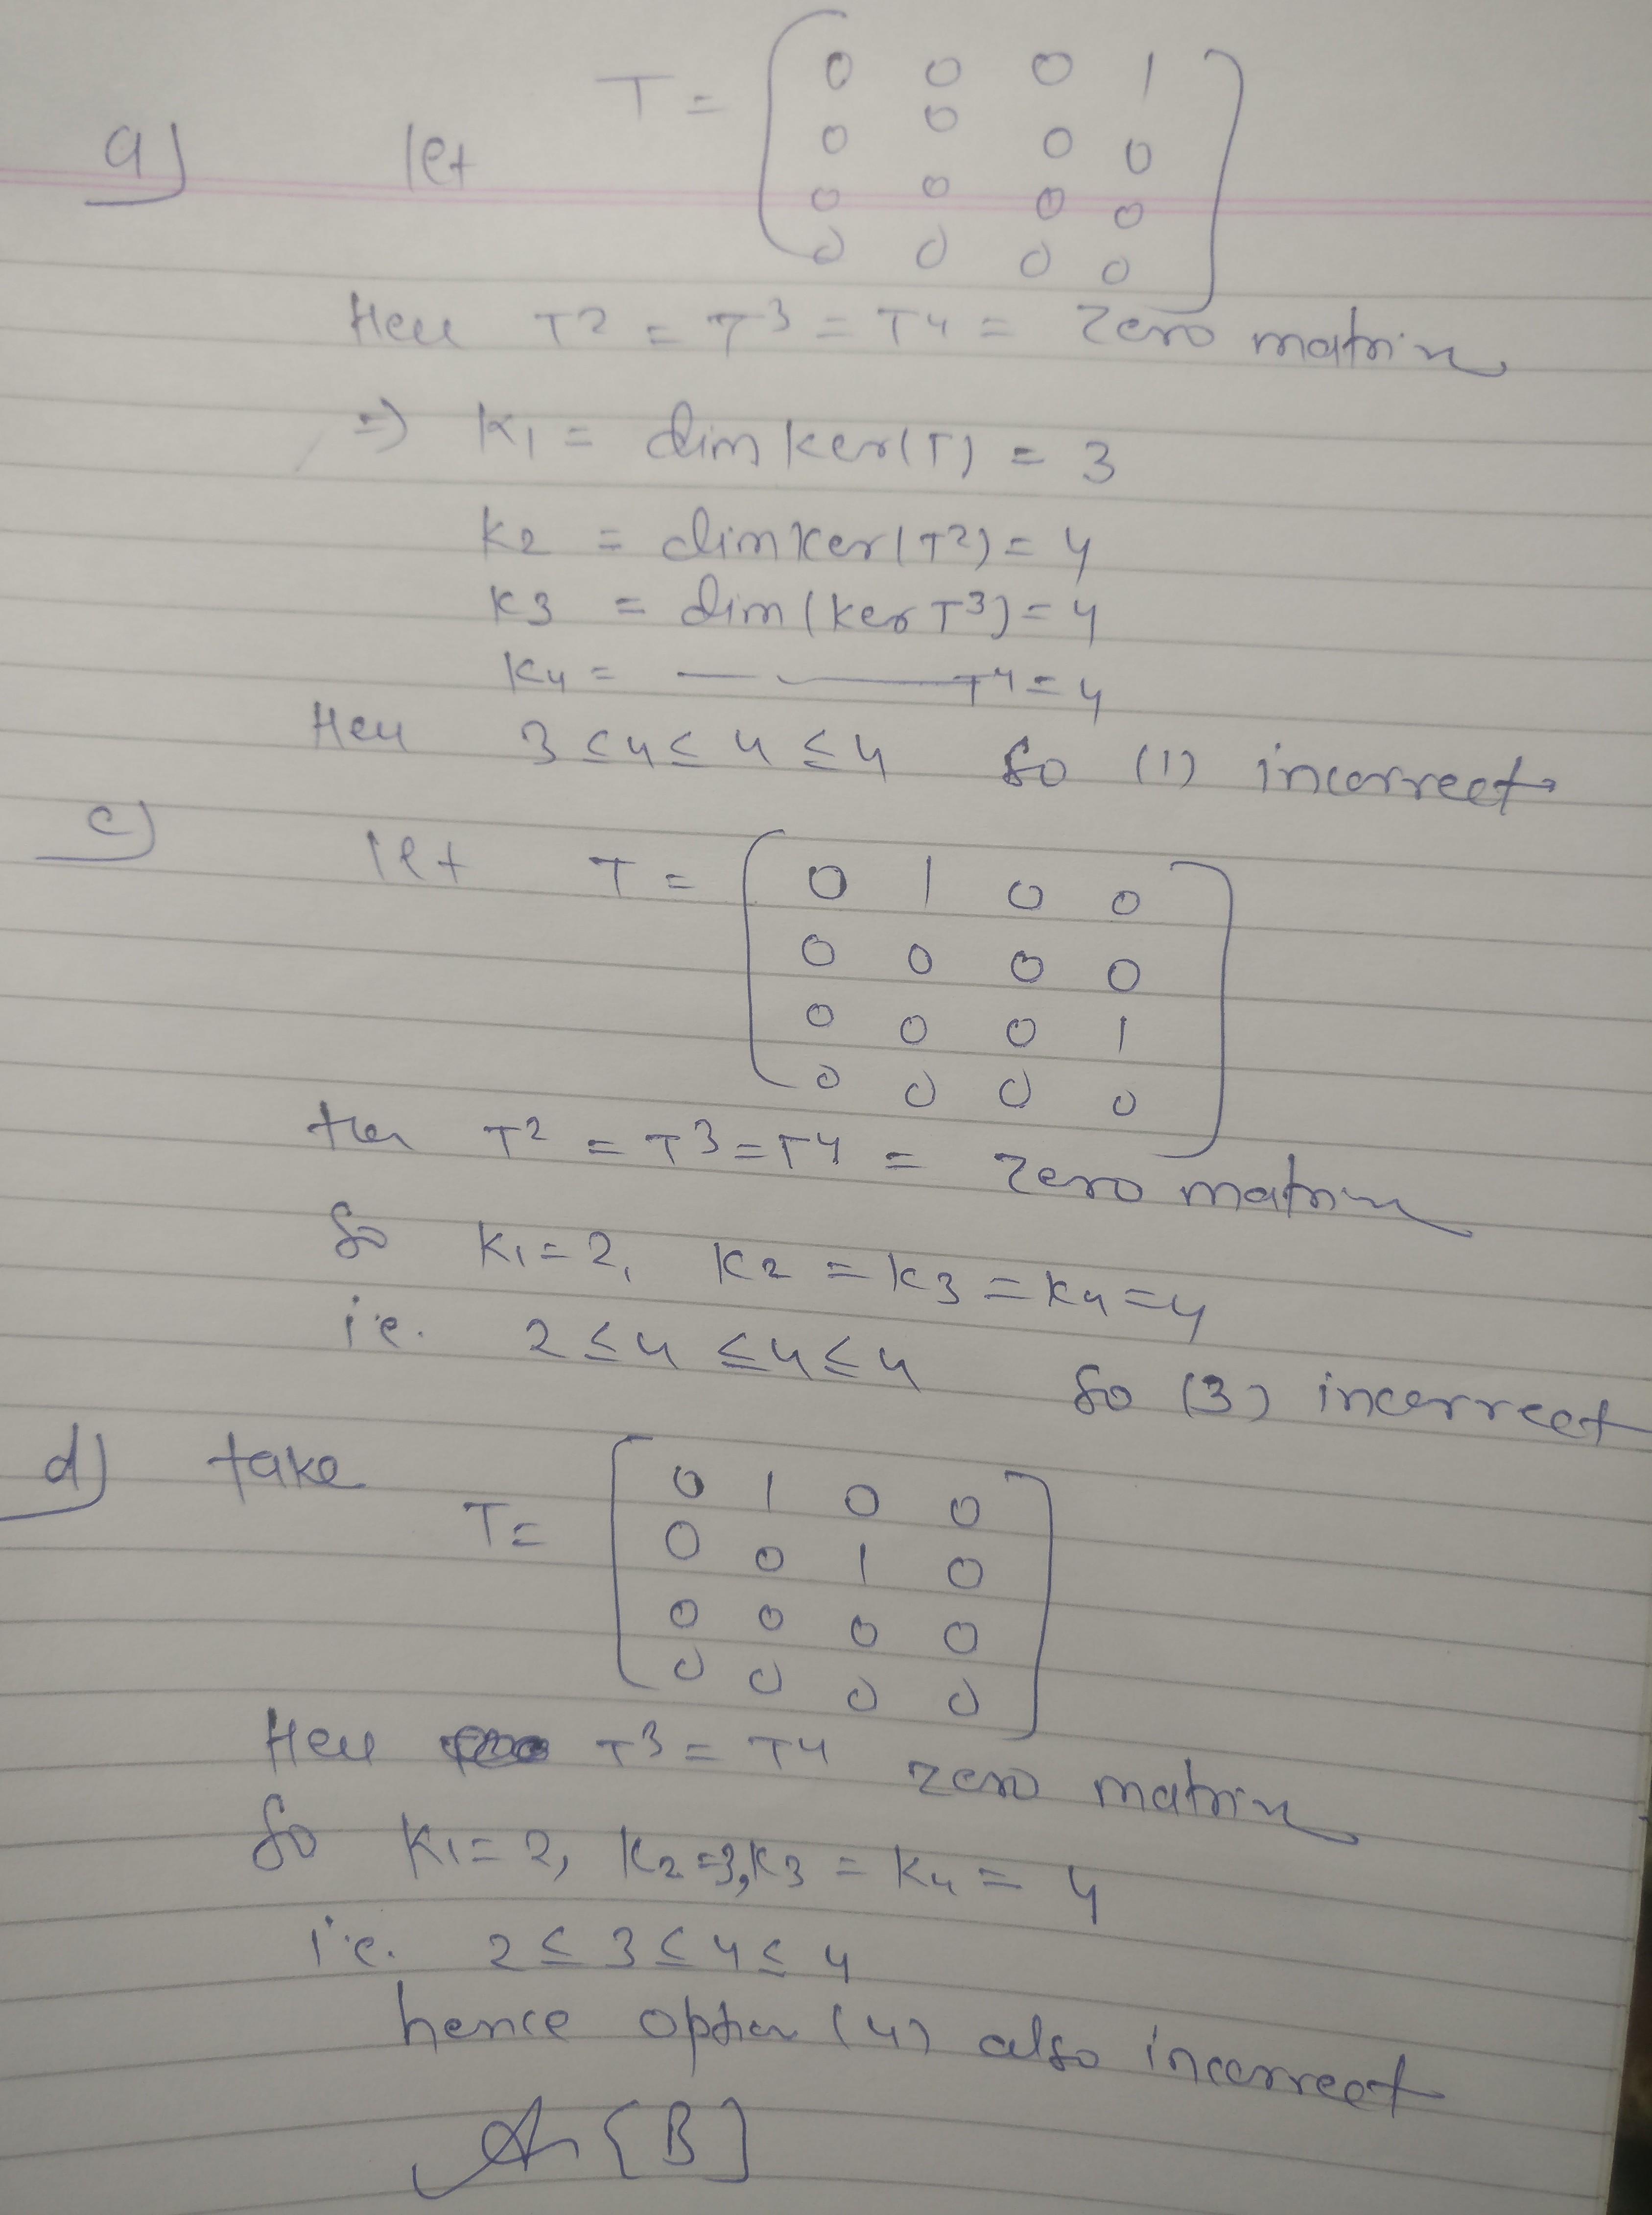 T = [ 0 0 0 1
a) let 0 0 0 0
0 0 0 0
0 0 0 0 ]
Here T² = T³ = T⁴ = Zero matrix
⇒ K₁ = dim ker(T) = 3
K₂ = dim ker(T²) = 4
K3 = dim (ker T³) = 4
K₄ = — —— T⁴ = 4
Here 3 ≤ 4 ≤ 4 ≤ 4 So (1) incorrect
c) let T = [ 0 1 0 0
0 0 0 0
0 0 0 1
0 0 0 0 ]
T² = T³ = T⁴ = Zero matrix
So K₁ = 2, K₂ = K3 = K₄ = 4
i.e. 2 ≤ 4 ≤ 4 ≤ 4 So (3) incorrect
d) take T = [ 0 1 0 0
0 0 1 0
0 0 0 0
0 0 0 0 ]
Here T³ = T⁴ zero matrix
So K₁ = 2, K₂ = 3, K3 = K₄ = 4
i.e. 2 ≤ 3 ≤ 4 ≤ 4
hence option (4) also incorrect
[B]